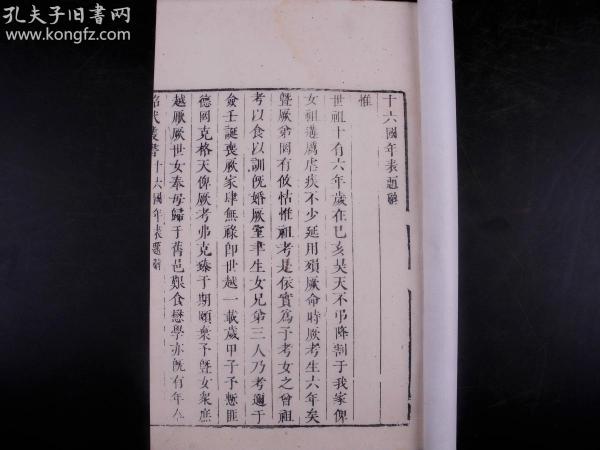 孔夫子旧书网
www.kongfz.com
十六國年表題辭
惟
世祖十有六年歲在己亥昊天不弔降割于我家俾
女祖遘厲虐疾不少延用殞厥命時厥考生六年矣
暨厥弟罔有攸怙惟祖考是依實為予考女之曾祖
考以食以訓旣婚厥室聿生女兄弟三人乃考遹于
僉壬誕喪厥家肆無祿即世越一載歲甲子予慙匪
德罔克格天俾厥考弗克臻于期頤棄予暨女粲庶
越厥厥世女奉母歸于舊邑艱食懋學亦旣有年
昭代叢書 十六國年表題辭